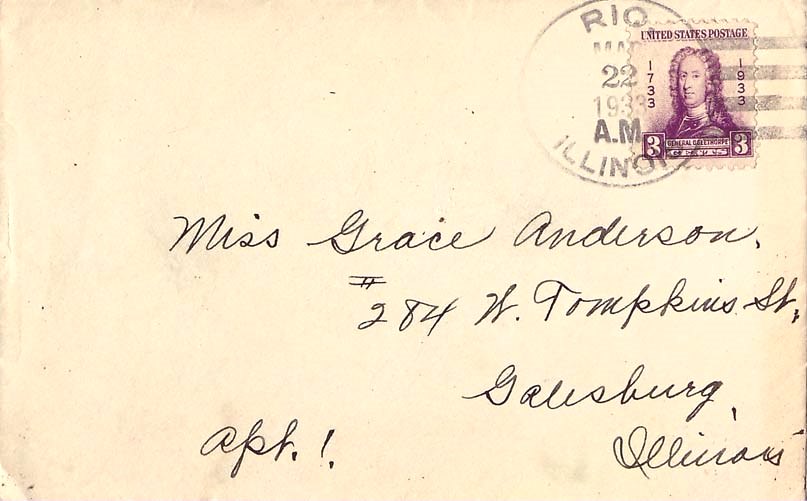 RIO,
MAR
22
1933
A.M.
ILLINOIS
UNITED STATES POSTAGE
1733
1933
3 GENERAL OGLETHORPE 3
CENTS
Miss Grace Anderson,
# 284 W. Tompkins St,
Galesburg,
Apt. 1. Illinois